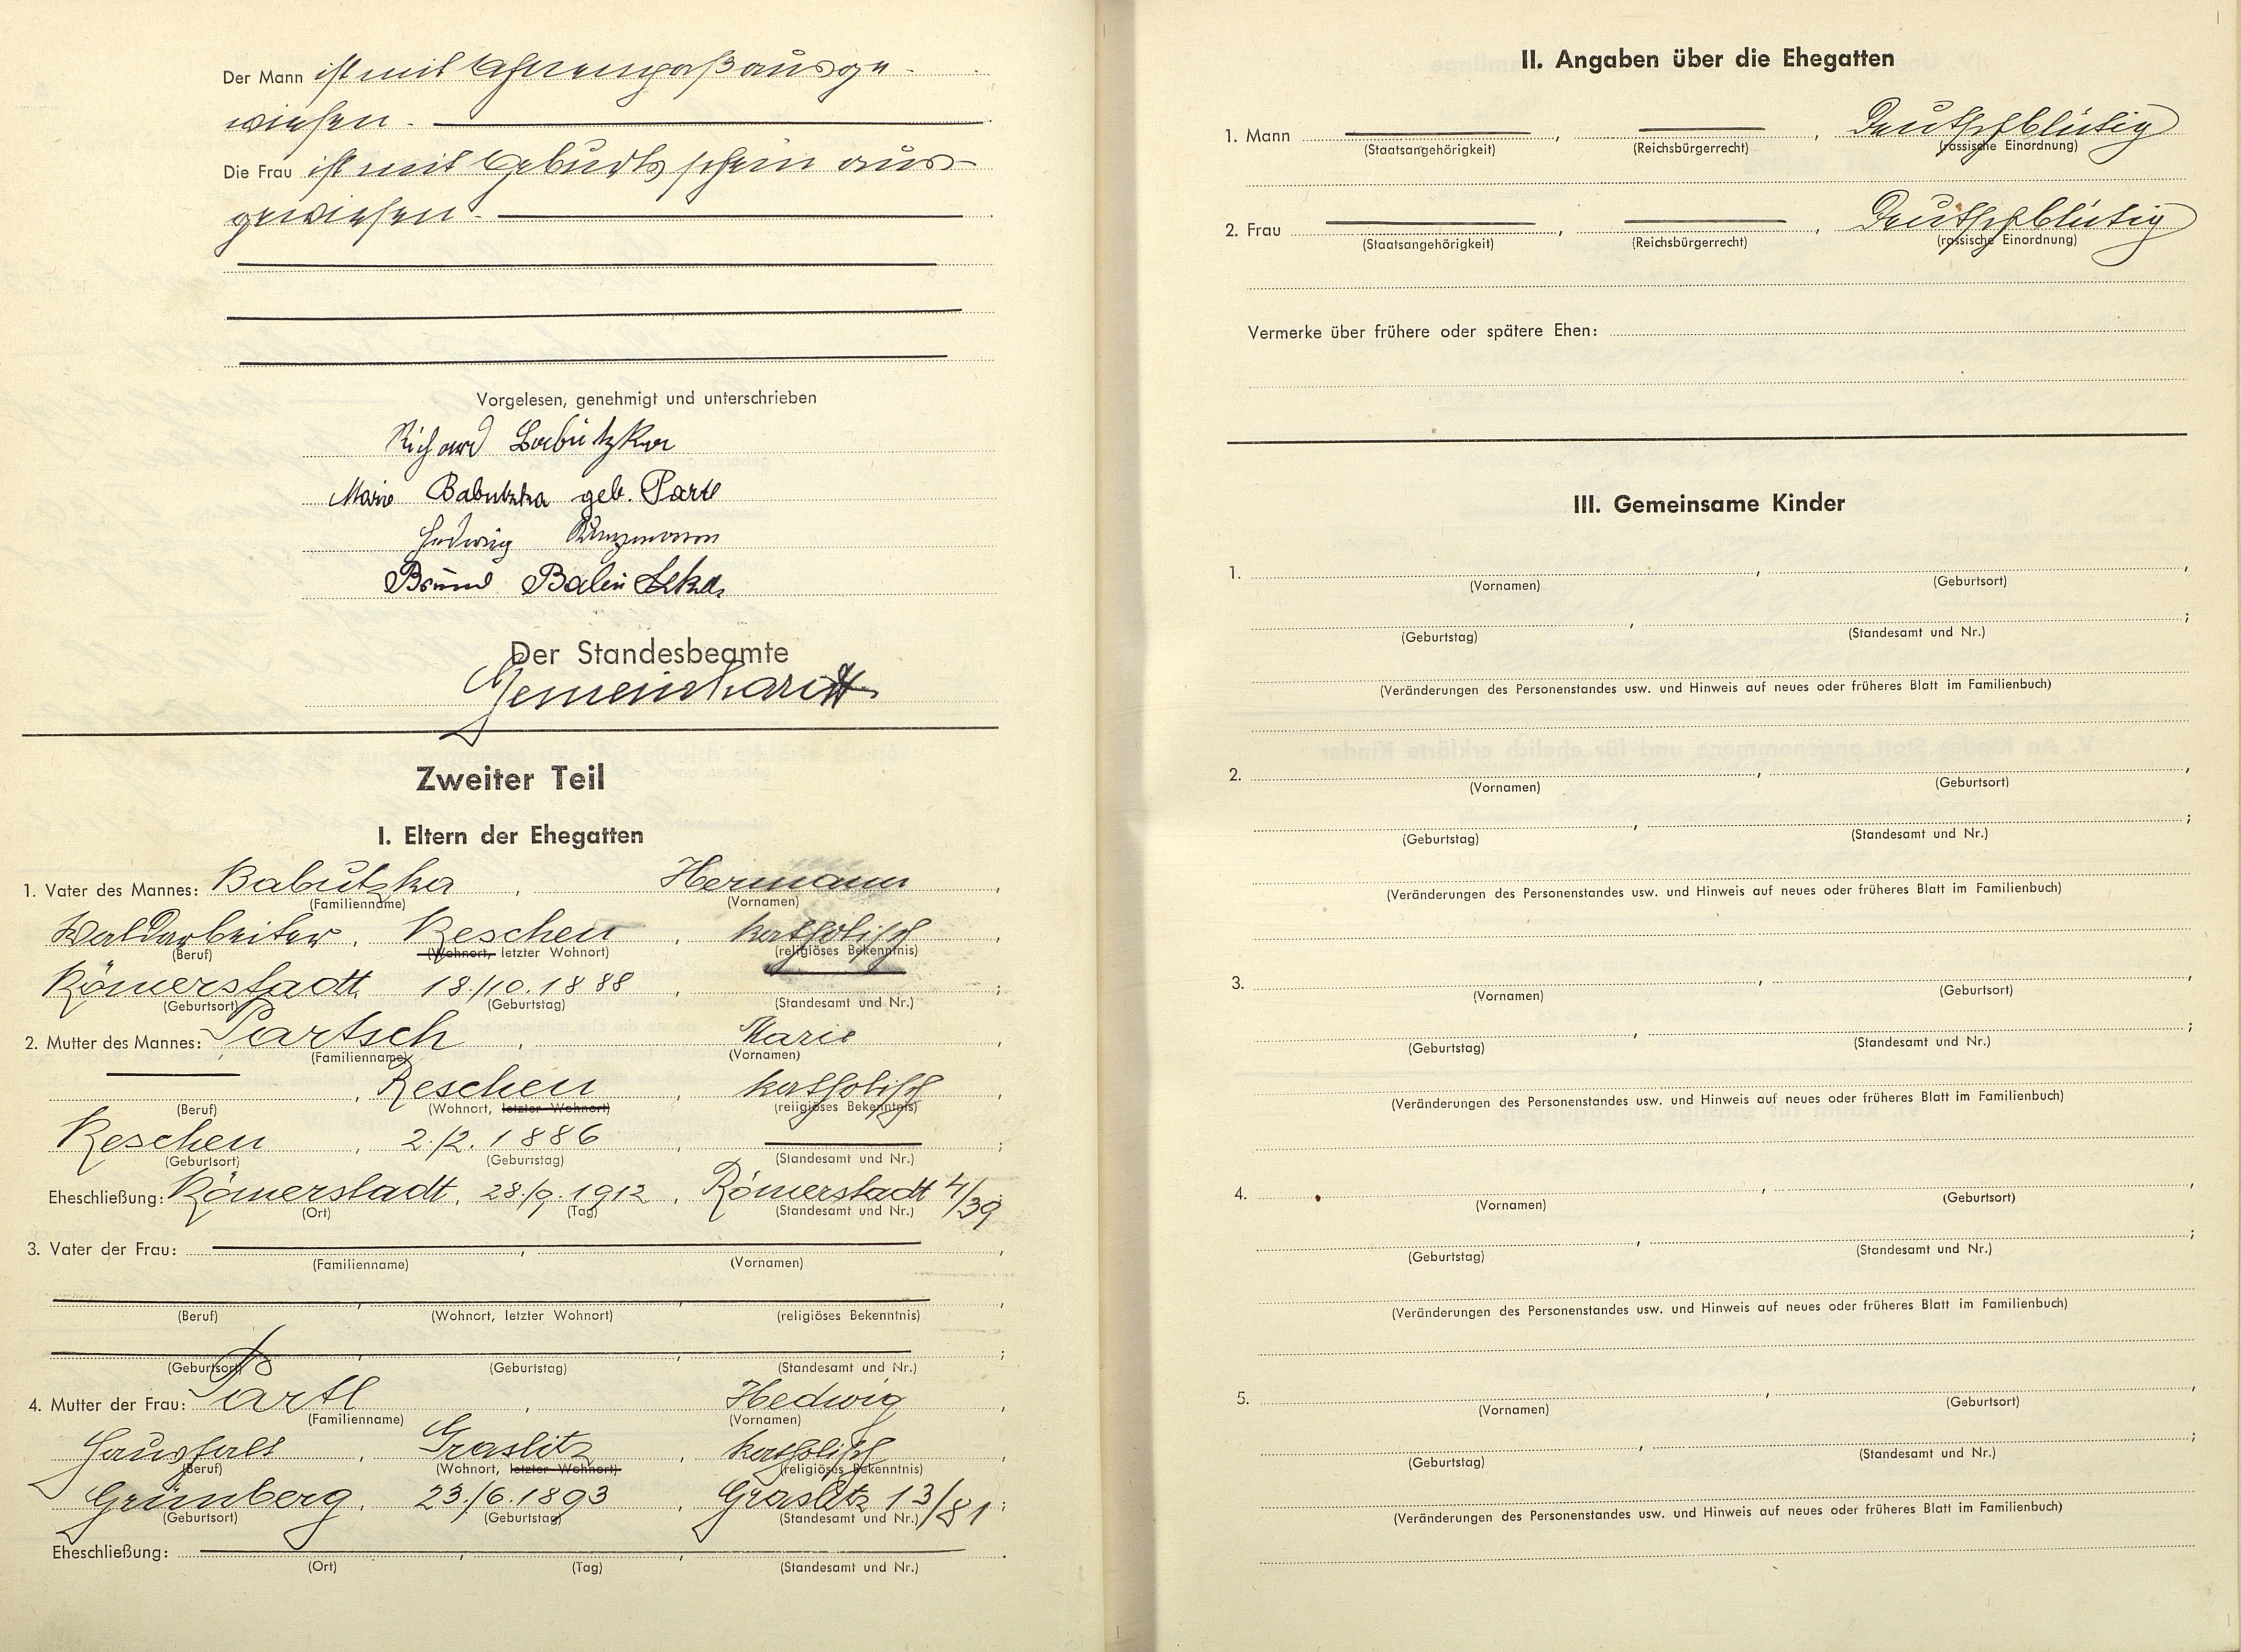 Der Mann ist mit Ahnenpaß ausge-
wiesen.
Die Frau ist mit Geburtsschein aus-
gewiesen.
Vorgelesen, genehmigt und unterschrieben
Richard Babutzka
Marie Babutzka geb. Partl
Hedwig
Bruno
Der Standesbeamte
Zweiter Teil
I. Eltern der Ehegatten
1. Vater des Mannes: Babutzka, Hermann,
(Familienname) (Vornamen)
Waldarbeiter, Reschen, katholisch,
(Beruf) (Wohnort, letzter Wohnort) (religiöses Bekenntnis)
Römerstadt, 18./10.1888, ;
(Geburtsort) (Geburtstag) (Standesamt und Nr.)
2. Mutter des Mannes: Partsch, Marie,
(Familienname) (Vornamen)
, Reschen, katholisch,
(Beruf) (Wohnort, letzter Wohnort) (religiöses Bekenntnis)
Reschen, 2./2.1886, ;
(Geburtsort) (Geburtstag) (Standesamt und Nr.)
Eheschließung: Römerstadt, 28./9.1912, Römerstadt 4/39
(Ort) (Tag) (Standesamt und Nr.)
3. Vater der Frau: , ,
(Familienname) (Vornamen)
(Beruf) (Wohnort, letzter Wohnort) (religiöses Bekenntnis)
(Geburtsort) (Geburtstag) (Standesamt und Nr.)
4. Mutter der Frau: Partl, Hedwig,
(Familienname) (Vornamen)
Haushalt, Graslitz, katholisch,
(Beruf) (Wohnort, letzter Wohnort) (religiöses Bekenntnis)
Grünberg, 23./6.1893, Graslitz 13/81;
(Geburtsort) (Geburtstag) (Standesamt und Nr.)
Eheschließung: , , .
(Ort) (Tag) (Standesamt und Nr.)
II. Angaben über die Ehegatten
1. Mann , , Deutschblütig
(Staatsangehörigkeit) (Reichsbürgerrecht) (rassische Einordnung)
2. Frau , , Deutschblütig
(Staatsangehörigkeit) (Reichsbürgerrecht) (rassische Einordnung)
Vermerke über frühere oder spätere Ehen:
III. Gemeinsame Kinder
1. , ,
(Vornamen) (Geburtsort)
, ;
(Geburtstag) (Standesamt und Nr.)
(Veränderungen des Personenstandes usw. und Hinweis auf neues oder früheres Blatt im Familienbuch)
2. , ,
(Vornamen) (Geburtsort)
, ;
(Geburtstag) (Standesamt und Nr.)
(Veränderungen des Personenstandes usw. und Hinweis auf neues oder früheres Blatt im Familienbuch)
3. , ,
(Vornamen) (Geburtsort)
, ;
(Geburtstag) (Standesamt und Nr.)
(Veränderungen des Personenstandes usw. und Hinweis auf neues oder früheres Blatt im Familienbuch)
4. , ,
(Vornamen) (Geburtsort)
, ;
(Geburtstag) (Standesamt und Nr.)
(Veränderungen des Personenstandes usw. und Hinweis auf neues oder früheres Blatt im Familienbuch)
5. , ,
(Vornamen) (Geburtsort)
, ;
(Geburtstag) (Standesamt und Nr.)
(Veränderungen des Personenstandes usw. und Hinweis auf neues oder früheres Blatt im Familienbuch)